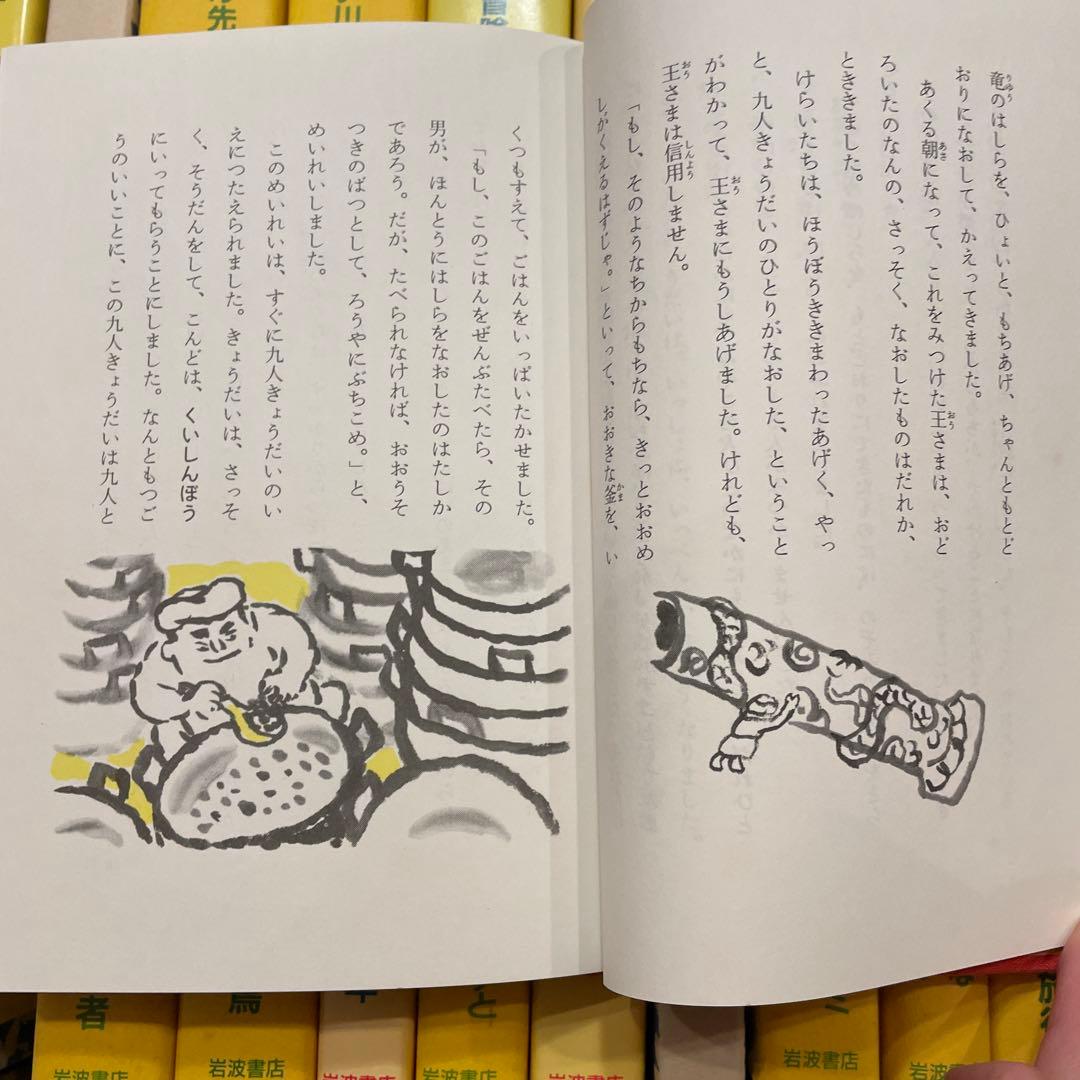 竜のはしらを、ひょいと、もちあげ、ちゃんともとど
おりになおして、かえってきました。
あくる朝になって、これをみつけた王さまは、おど
ろいたのなんの、さっそく、なおしたものはだれか、
とききました。
けらいたちは、ほうぼうききまわったあげく、やっ
と、九人きょうだいのひとりがなおした、ということ
がわかって、王さまにもうしあげました。けれども、
王さまは信用しません。
「もし、そのようなちからもちなら、きっとおおめ
しがくえるはずじゃ。」といって、おおきな釜を、い
くつもすえて、ごはんをいっぱいたかせました。
「もし、このごはんをぜんぶたべたら、その
男が、ほんとうにはしらをなおしたのはたしか
であろう。だが、たべられなければ、おおうそ
つきのばつとして、ろうやにぶちこめ。」と、
めいれいしました。
このめいれいは、すぐに九人きょうだいのい
えにつたえられました。きょうだいは、さっそ
く、そうだんをして、こんどは、くいしんぼう
にいってもらうことにしました。なんともつご
うのいいことに、この九人きょうだいは九人と
先
川
冒険
者
鳥
と
岩波書店
岩波書店
岩波書店
岩波書店
岩波書店
岩波書店
岩波書店